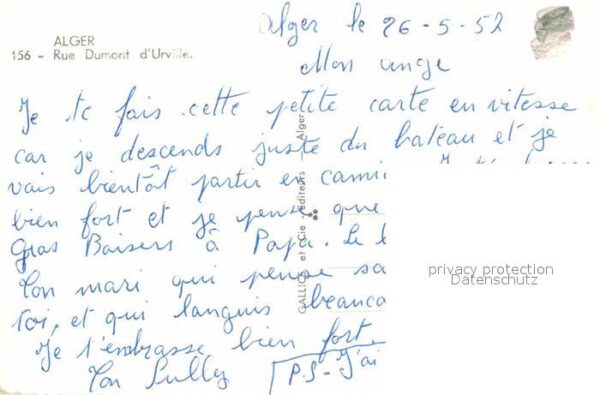 ALGER
156 - Rue Dumont d'Urville.
Alger le 26-5-52
Mon ange
Je te fais cette petite carte en vitesse
car je descends juste du bateau et je
vais bientôt partir en cami
bien fort et je pense que
Gros Baisers à Papa. Le
Ton mari qui pense sa
toi, et qui languis beauco
Je t'embrasse bien fort.
Ton Sully
P.S - J'ai
GALLICE et Cie - Éditeurs - Alger
privacy protection
Datenschutz